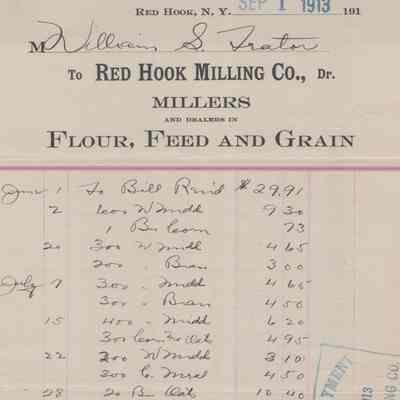 RED HOOK, N. Y. SEP 1 1913 191
M William S. Trator
To RED HOOK MILLING CO., Dr.
MILLERS
AND DEALERS IN
FLOUR, FEED AND GRAIN
June 1 To Bill Ren'd $29.91
2 600 W Midd 9 30
1 Bu Corn 73
20 300 W Midd 4 65
200 " Bran 3 00
July 7 300 " Midd 4 65
300 " Bran 4 50
15 400 " Midd 6 20
300 Corn & Oats 4 95
22 200 W Midd 3 10
300 C. Meal 4 50
28 20 Bu Oats 10 40
TMENT
1913
NG CO.